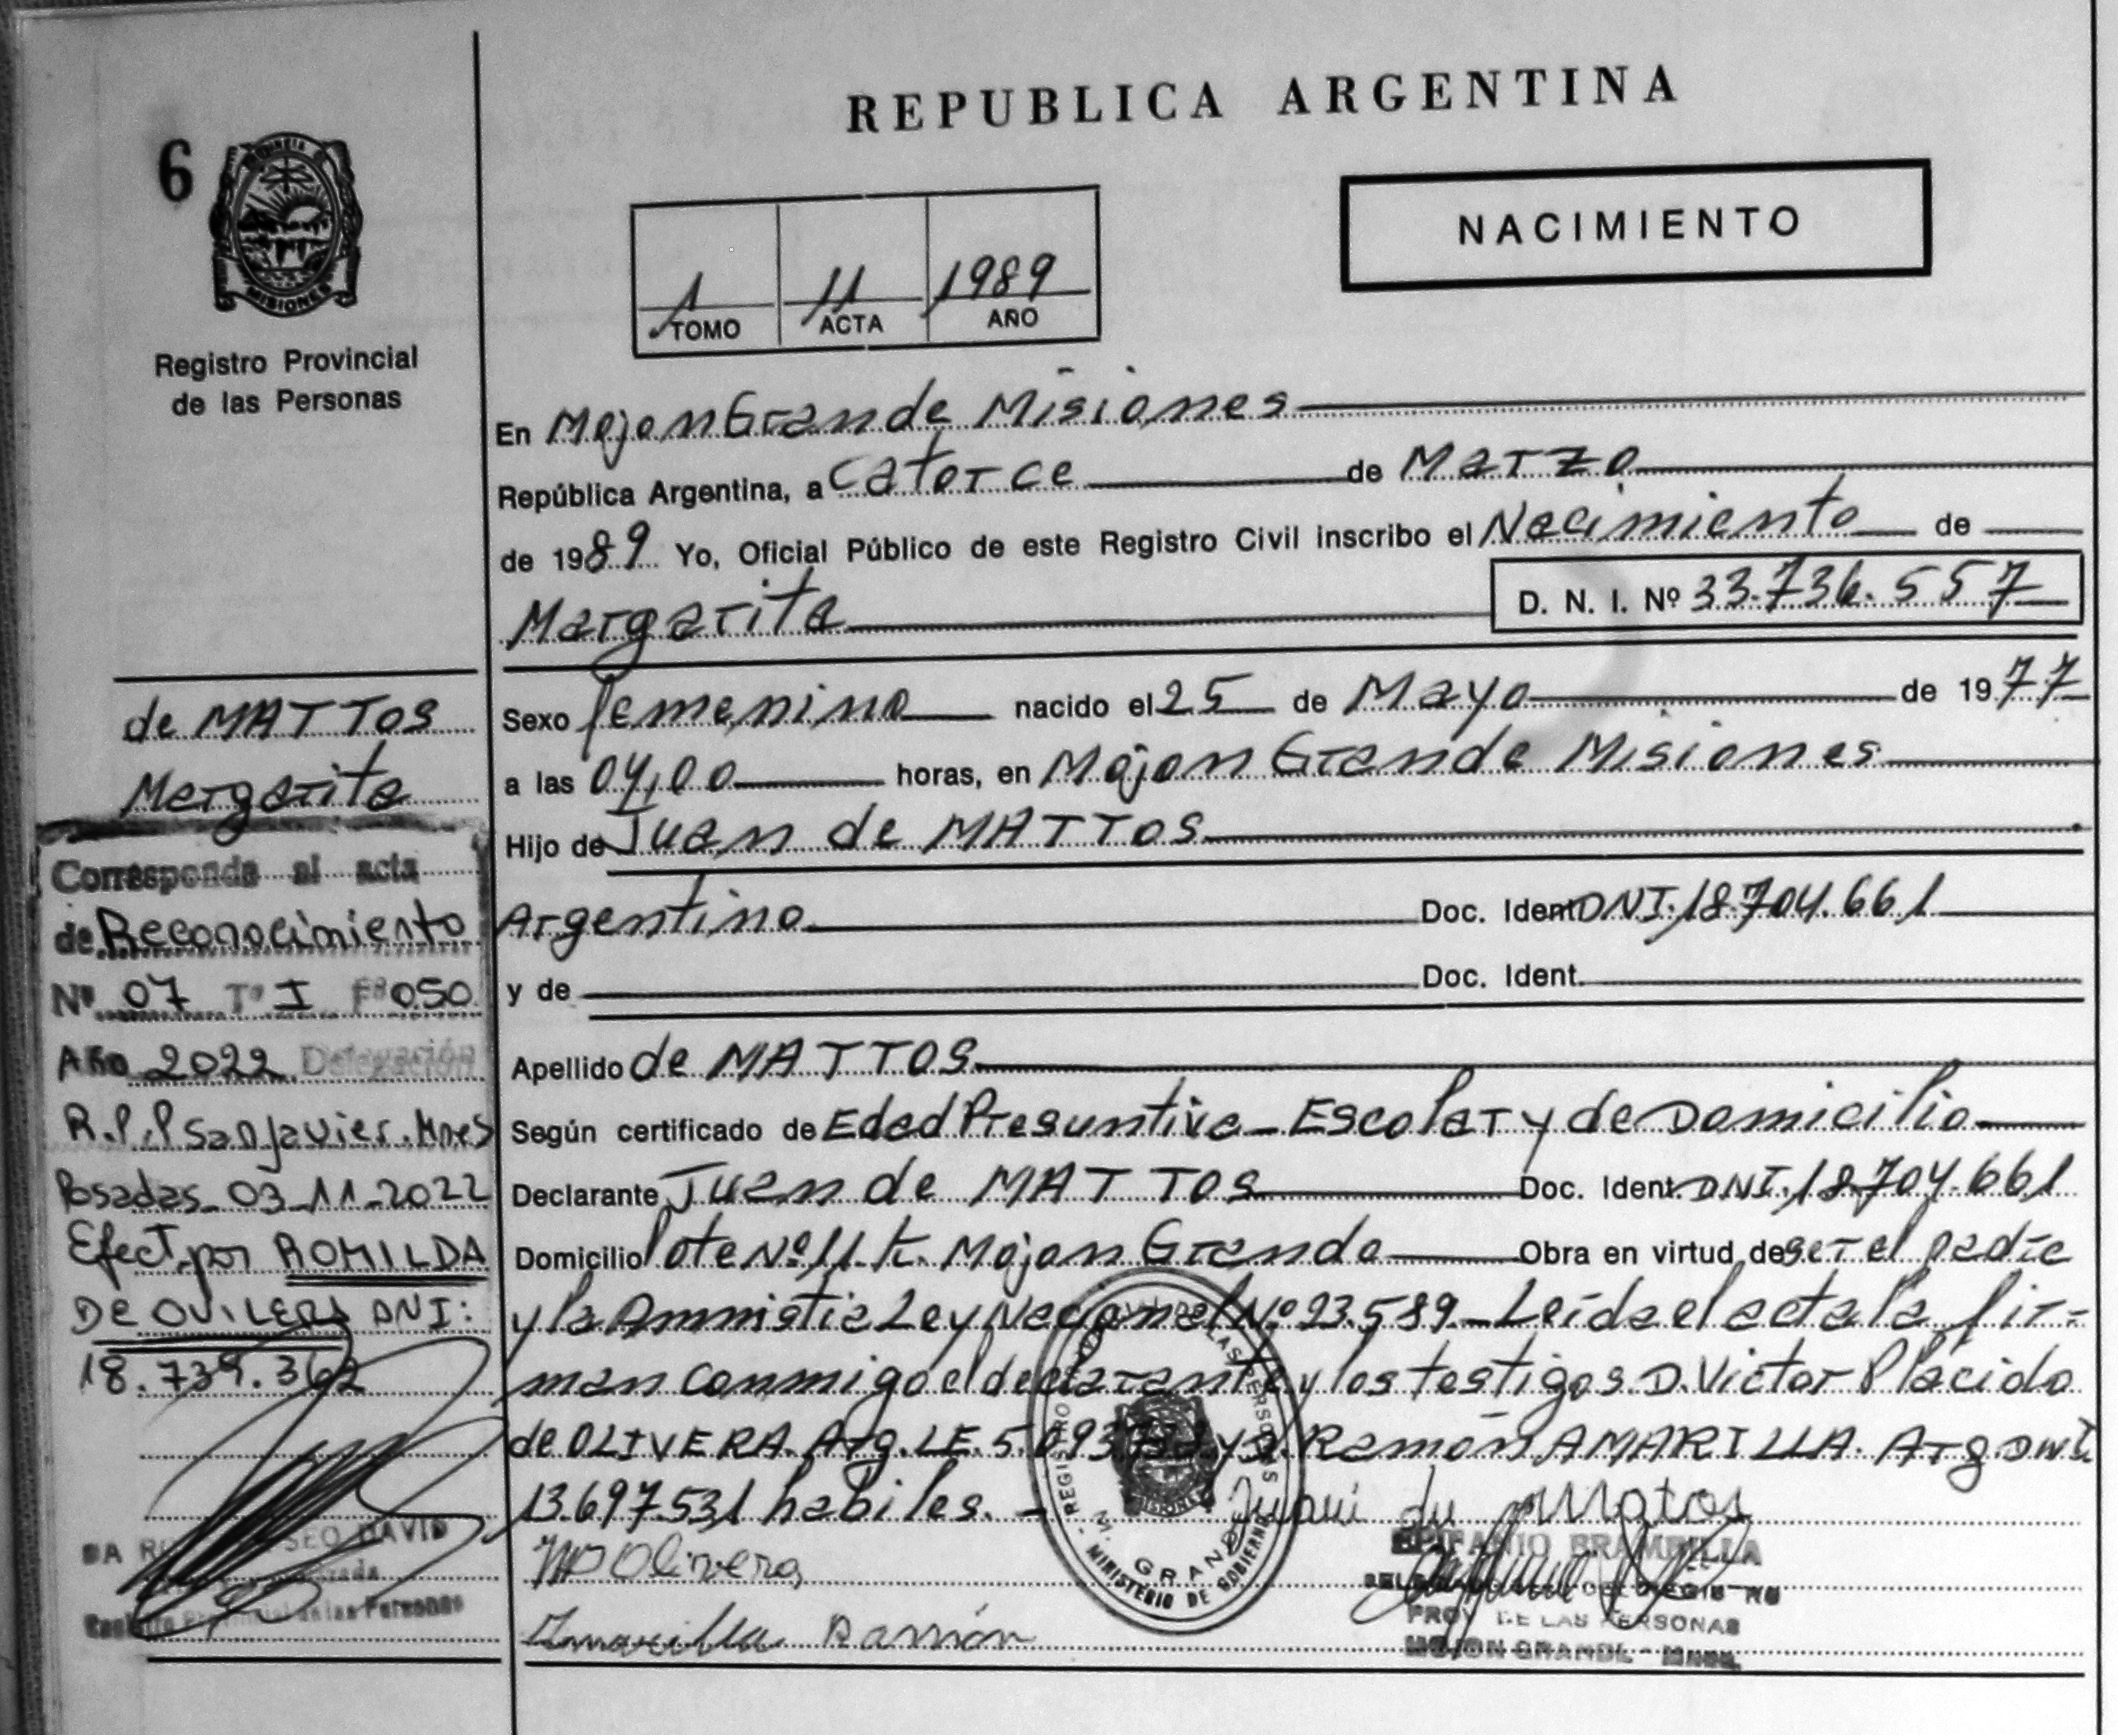 REPUBLICA ARGENTINA
6
MISIONES
Registro Provincial
de las Personas
NACIMIENTO
1 11 1989
TOMO ACTA AÑO
En Mojon Grande Misiones
República Argentina, a catorce de Marzo
de 1989 Yo, Oficial Público de este Registro Civil inscribo el Nacimiento de
Margarita
D. N. I. Nº 33.736.557
Sexo femenino nacido el 25 de Mayo de 1977
a las 04,00 horas, en Mojon Grande Misiones
Hijo de Juan de MATTOS
Argentino Doc. Ident DNI.18.704.661
y de Doc. Ident.
Apellido de MATTOS
Según certificado de Edad Presuntiva - Escolar y de Domicilio
Declarante Juan de MATTOS Doc. Ident. DNI.18.704.661
Domicilio lote Nº 11.K. Mojon Grande Obra en virtud de ser el padre
y la Amnistia Ley Nacional Nº 23.589.- Leída el acta la fir-
man conmigo el declarante y los testigos D. Victor Placido
de OLIVERA. Arg. LE. 5. y D. Ramón AMARILLA. Arg DNI
13.697.531 habiles. -
de MATTOS
Margarita
Corresponde al acta
de Reconocimiento
Nº 07 Tº I Fº 050
Año 2022 Delegación
R.P.P San Javier. Mnes
Posadas - 03 - 11 - 2022
Efect. por ROMILDA
DE OVILERS DNI:
18.739.362
DAVID
de las Personas
REGISTRO DE LAS PERSONAS
M. GRANDE
MINISTERIO DE GOBIERNO
Matos
Olivera
EPIFANIO BRAMBILLA
PROV DE LAS PERSONAS
MOJON GRANDE - Mnes.
Amarilla Ramón